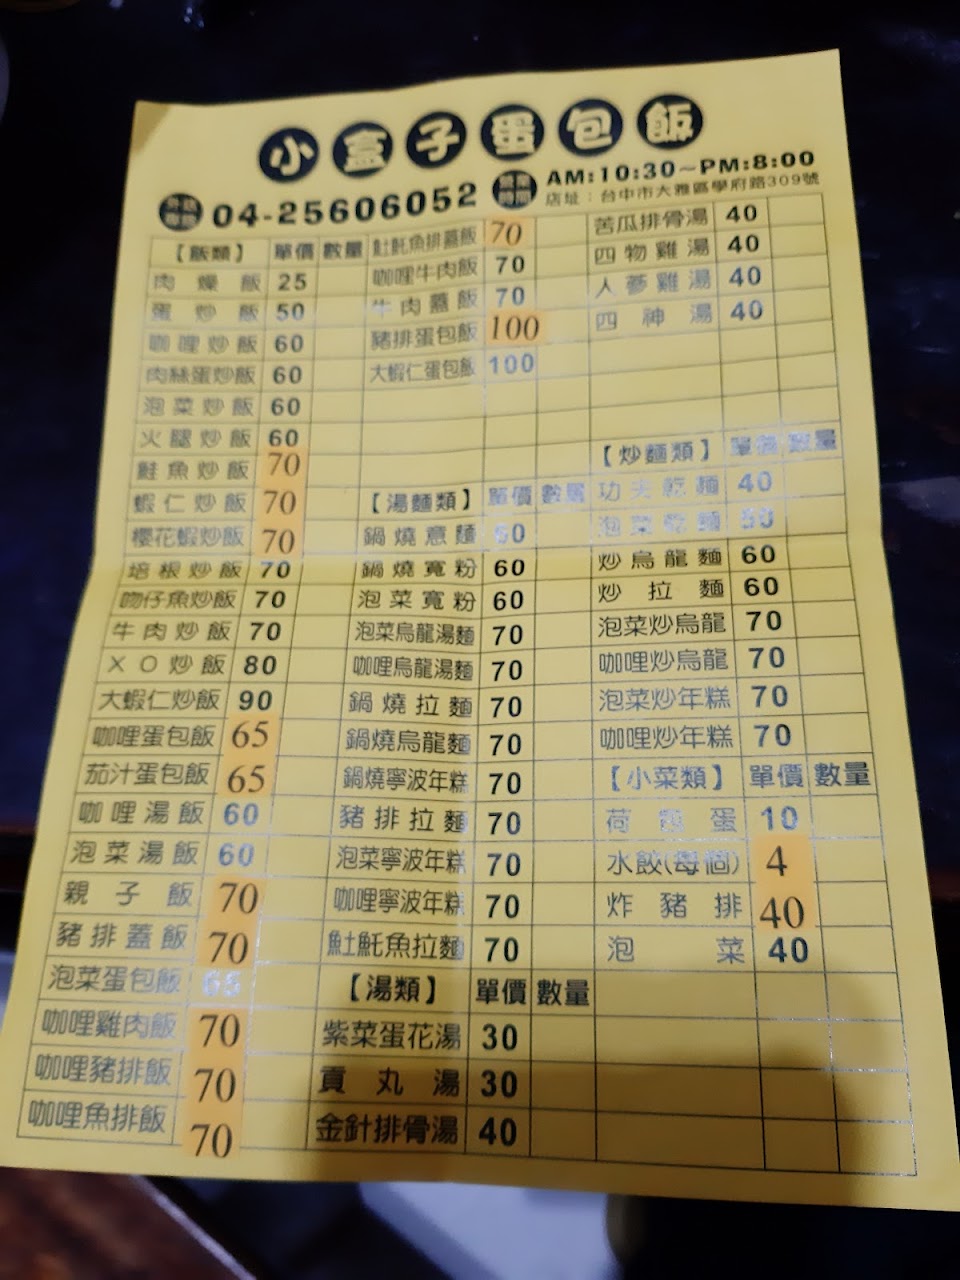 小盒子蛋包飯
外送專線 04-25606052
營業時間 AM:10:30~PM:8:00
店址：台中市大雅區學府路309號
【飯類】 單價 數量
肉燥飯 25
蛋炒飯 50
咖哩炒飯 60
肉絲蛋炒飯 60
泡菜炒飯 60
火腿炒飯 60
鮭魚炒飯 70
蝦仁炒飯 70
櫻花蝦炒飯 70
培根炒飯 70
吻仔魚炒飯 70
牛肉炒飯 70
XO炒飯 80
大蝦仁炒飯 90
咖哩蛋包飯 65
茄汁蛋包飯 65
咖哩湯飯 60
泡菜湯飯 60
親子飯 70
豬排蓋飯 70
泡菜蛋包飯 65
咖哩雞肉飯 70
咖哩豬排飯 70
咖哩魚排飯 70
魠魠魚排蓋飯 70
咖哩牛肉飯 70
牛肉蓋飯 70
豬排蛋包飯 100
大蝦仁蛋包飯 100
【湯麵類】 單價 數量
鍋燒意麵 60
鍋燒寬粉 60
泡菜寬粉 60
泡菜烏龍湯麵 70
咖哩烏龍湯麵 70
鍋燒拉麵 70
鍋燒烏龍麵 70
鍋燒寧波年糕 70
豬排拉麵 70
泡菜寧波年糕 70
咖哩寧波年糕 70
魠魠魚拉麵 70
【湯類】 單價 數量
紫菜蛋花湯 30
貢丸湯 30
金針排骨湯 40
苦瓜排骨湯 40
四物雞湯 40
人蔘雞湯 40
四神湯 40
【炒麵類】 單價 數量
功夫乾麵 40
泡菜乾麵 50
炒烏龍麵 60
炒拉麵 60
泡菜炒烏龍 70
咖哩炒烏龍 70
泡菜炒年糕 70
咖哩炒年糕 70
【小菜類】 單價 數量
荷包蛋 10
水餃(每個) 4
炸豬排 40
泡菜 40